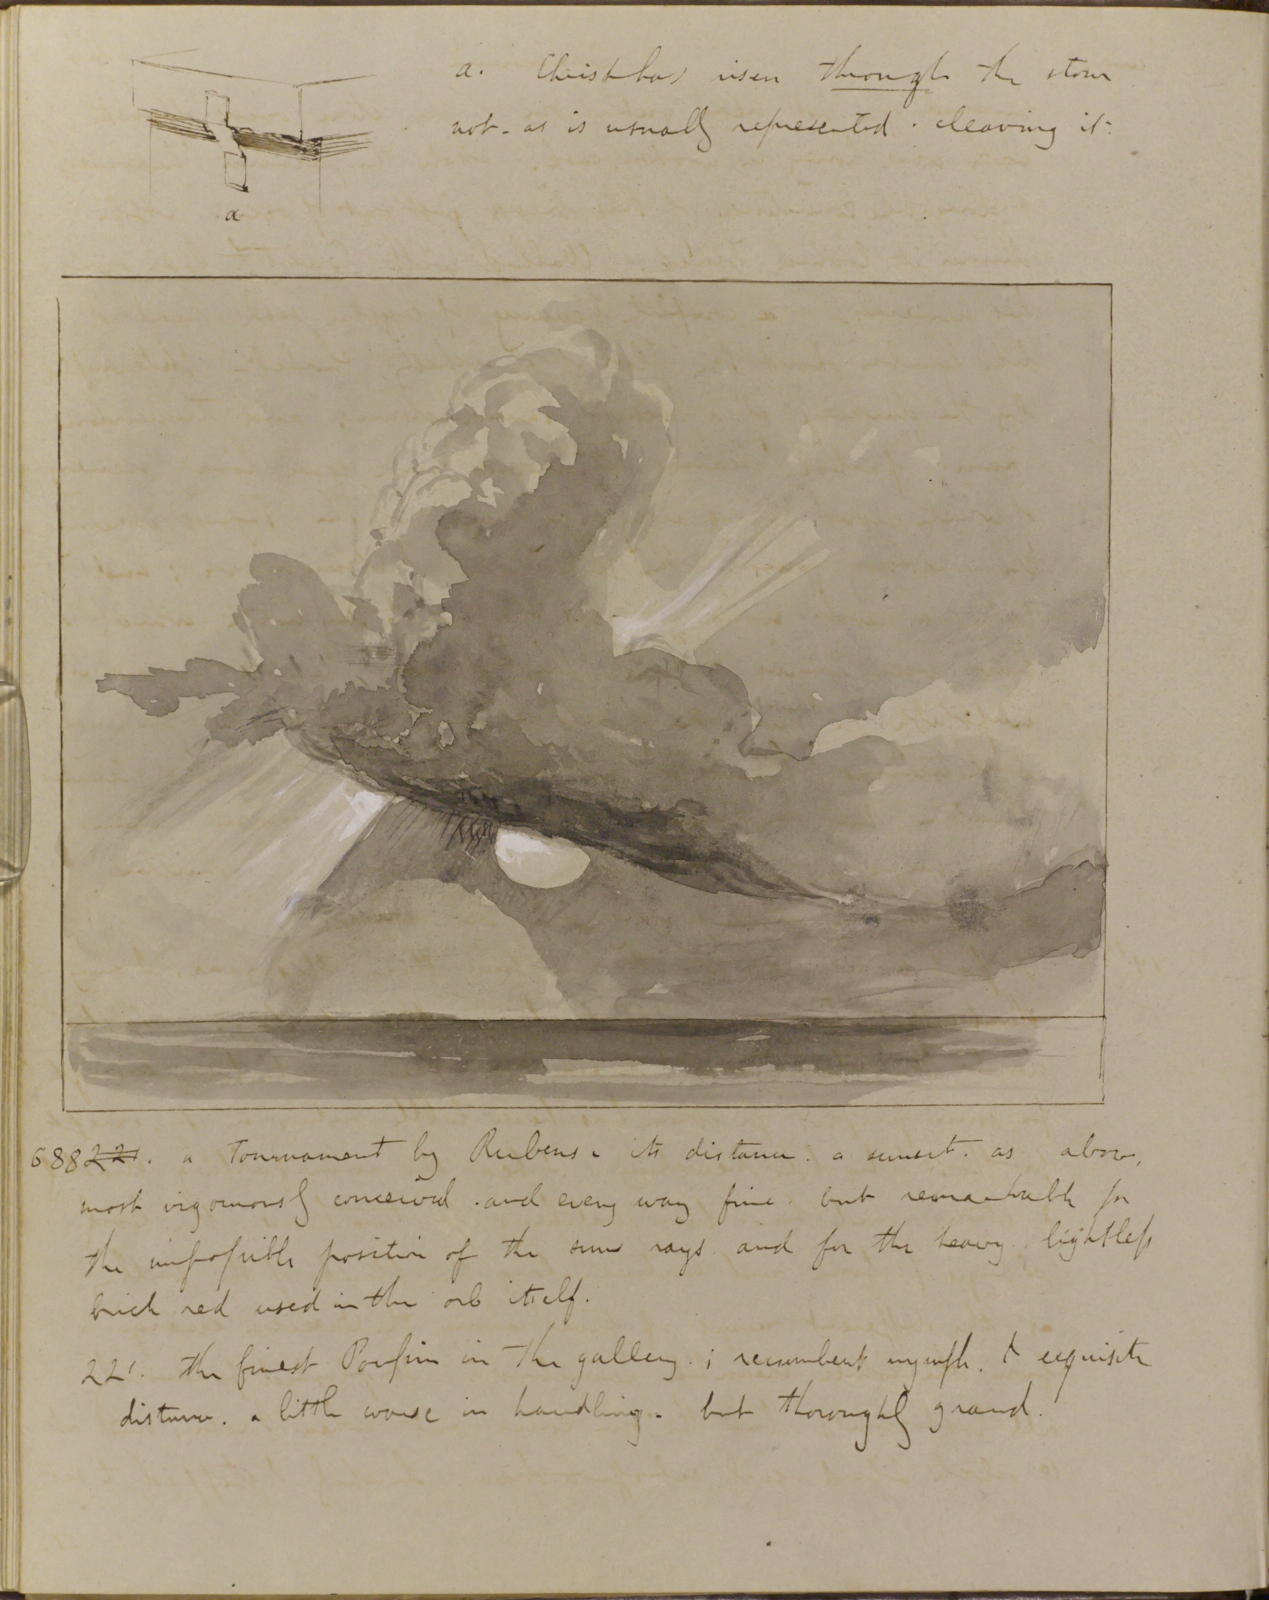 a. Christ has risen through the stone
not - as is usually represented - cleaving it.
a
68822'. a Tournament by Rubens. its distance. a sunset. as above,
most vigorously conceived. and every way fine. but remarkable for
the impossible position of the suns rays. and for the heavy. lightless
brick red used in the orb itself.
221. the finest Poussin in the gallery. ; recumbent nymph. & exquisite
distance. a little worse in handling. but thoroughly grand.